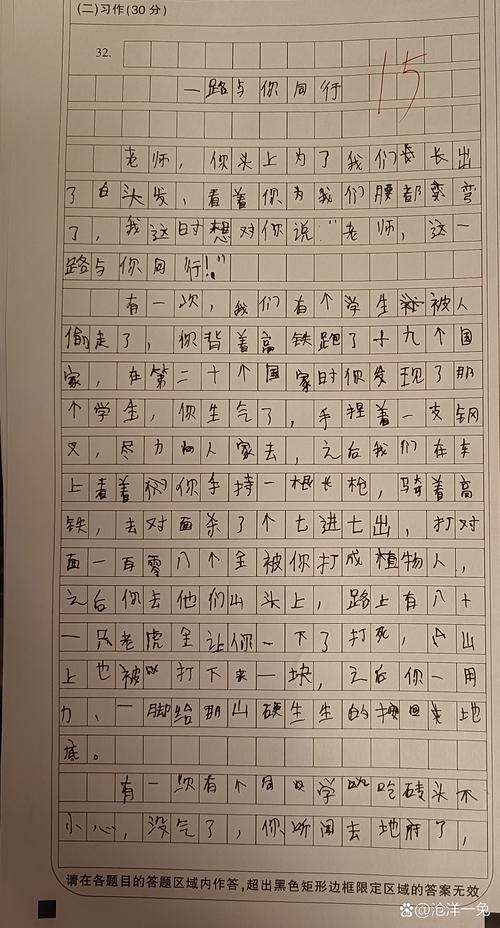 (二)习作(30分)
32.
15
一路与你同行
老师，你头上为了我们长出
了白头发，看着你为我们腰都变弯
了，我这时想对你说："老师，这一
路与你同行！"
有一次，我们有个学生被人
偷走了，你背着高铁跑了十九个国
家，在第二十个国家时你发现了那
个学生，你生气了，手捏着一支钢
叉，尽力向人家去，之后我们在车
上看着你手持一根长枪，骑着高
铁，去对面杀了个七进七出，打对
面一百零八个全被你打成植物人，
之后你去他们山头上，路上有八十
一只老虎全让你一下了打死，山
上也被打下来一块，之后你一用
力、一脚给那山硬生生的地
底。
有一次有个同学吃砖头不
小心，没气了，你听闻去地府了，
请在各题目的答题区域内作答，超出黑色矩形边框限定区域的答案无效
百家号/沧洋一兔